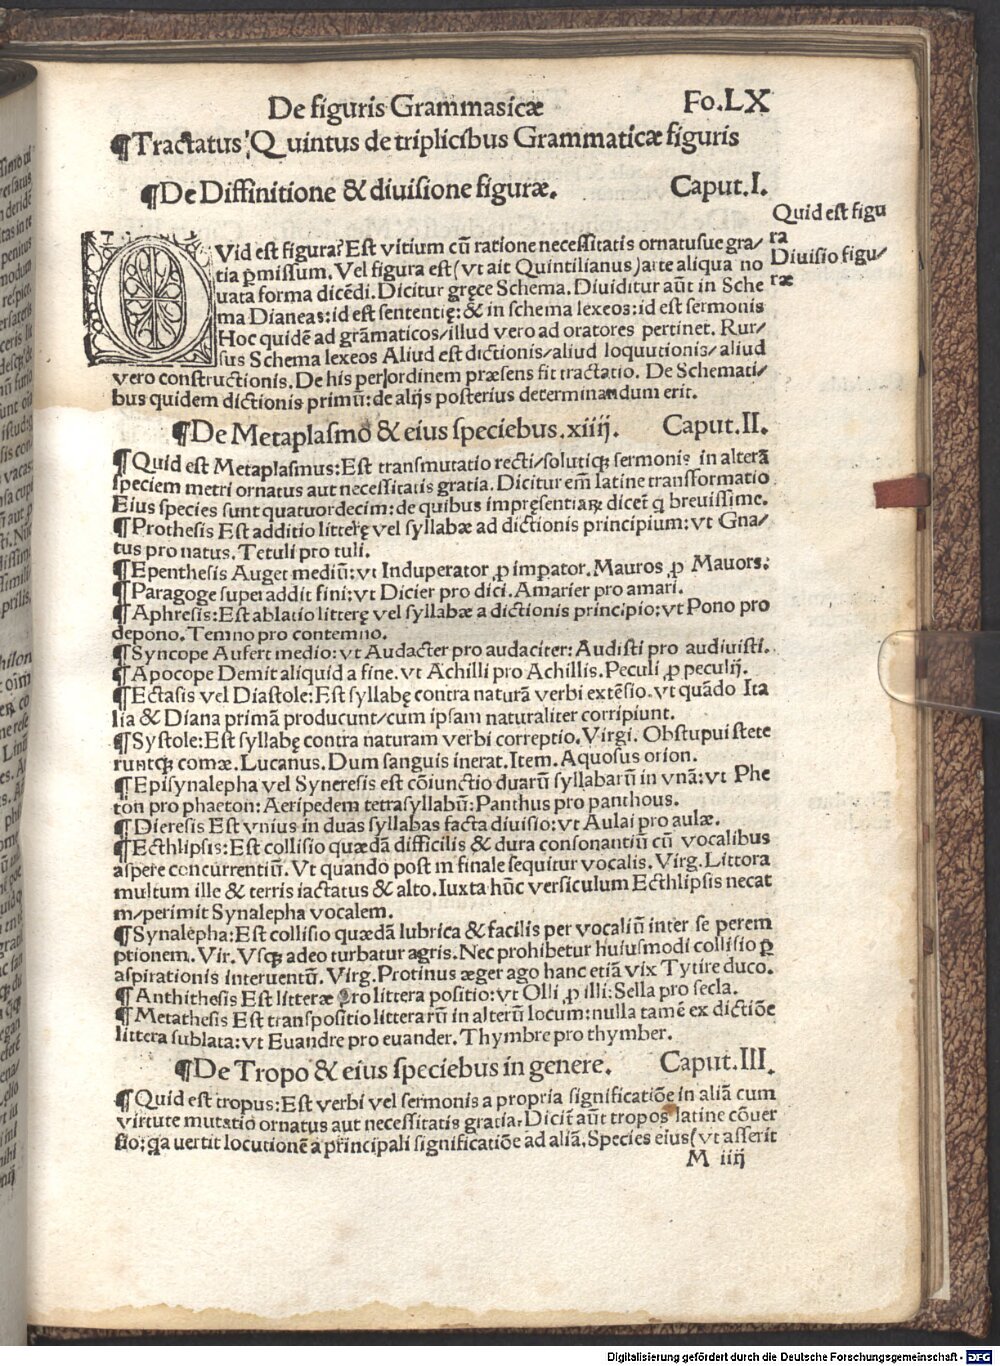 De figuris Grammasicæ Fo.LX
¶Tractatus Quintus de triplicibus Grammaticæ figuris
¶De Diffinitione & diuisione figuræ. Caput.I.
Quid est figu
ra
Diuisio figu/
ræ
QVid est figura? Est vitium cū ratione necessitatis ornatusue gra/
tia p̱missum. Vel figura est (vt ait Quintilianus) arte aliqua no
uata forma dicēdi. Dicitur gręce Schema. Diuiditur aūt in Sche
ma Dianeas: id est sententię: & in schema lexeos: id est sermonis
Hoc quidē ad grāmaticos/illud vero ad oratores pertinet. Rur/
sus Schema lexeos Aliud est dictionis/aliud loquutionis/aliud
vero constructionis. De his per ordinem præsens fit tractatio. De Schemati/
bus quidem dictionis primū: de alijs posterius determinandum erit.
¶De Metaplasmo & eius speciebus.xiiij. Caput.II.
¶Quid est Metaplasmus: Est transmutatio recti/solutiqꝫ sermonis in alterā
speciem metri ornatus aut necessitatis gratia. Dicitur em̄ latine transformatio
Eius species sunt quatuordecim: de quibus impręsentiaꝝ dicet̄ q̄ breuissime.
¶Prothesis Est additio litterę vel syllabæ ad dictionis principium: vt Gna/
tus pro natus. Tetuli pro tuli.
¶Epenthesis Auget mediū: vt Induperator ꝓ imp̱ator. Mauros ꝓ Mauors:
¶Paragoge super addit fini: vt Dicier pro dici. Amarier pro amari.
¶Aphresis: Est ablatio litterę vel syllabæ a dictionis principio: vt Pono pro
depono. Temno pro contemno.
¶Syncope Aufert medio: vt Audacter pro audaciter: Audisti pro audiuisti.
¶Apocope Demit aliquid a fine. vt Achilli pro Achillis. Peculi ꝓ peculij.
¶Ectasis vel Diastole: Est syllabę contra naturā verbi extēsio. vt quādo Ita
lia & Diana primā producunt/cum ipsam naturaliter corripiunt.
¶Systole: Est syllabę contra naturam verbi correptio. Virgi. Obstupui stete
runtqꝫ comæ. Lucanus. Dum sanguis inerat. Item. Aquosus orion.
¶Episynalepha vel Syneresis est cōiunctio duarū syllabarū in vnā: vt Phe
ton pro phaeton: Aeripedem tetrasyllabū: Panthus pro panthous.
¶Dieresis Est vnius in duas syllabas facta diuisio: vt Aulai pro aulæ.
¶Ecthlipsis: Est collisio quædā difficilis & dura consonantiū cū vocalibus
aspere concurrentiū. Vt quando post m finale sequitur vocalis. Virg. Littora
multum ille & terris iactatus & alto. Iuxta hūc versiculum Ecthlipsis necat
m/perimit Synalepha vocalem.
¶Synalepha: Est collisio quædā lubrica & facilis per vocaliū inter se perem
ptionem. Vir. Vsqꝫ adeo turbatur agris. Nec prohibetur huiusmodi collisio p̱
aspirationis interuentū. Virg. Protinus æger ago hanc etiā vix Tytire duco.
¶Anthithesis Est litteræ pro littera positio: vt Olli ꝓ illi: Sella pro secla.
¶Metathesis Est transpositio litterarū in alterū locum: nulla tamē ex dictiōe
littera sublata: vt Euandre pro euander. Thymbre pro thymber.
¶De Tropo & eius speciebus in genere. Caput.III.
¶Quid est tropus: Est verbi vel sermonis a propria significatiōe in aliā cum
virtute mutatio ornatus aut necessitatis gratia. Dicit̄ aūt tropos latine cōuer
sio: qa uertit locutionē a principali significatiōe ad aliā. Species eius (vt asserit
M iiij
Digitalisierung gefördert durch die Deutsche Forschungsgemeinschaft - DFG